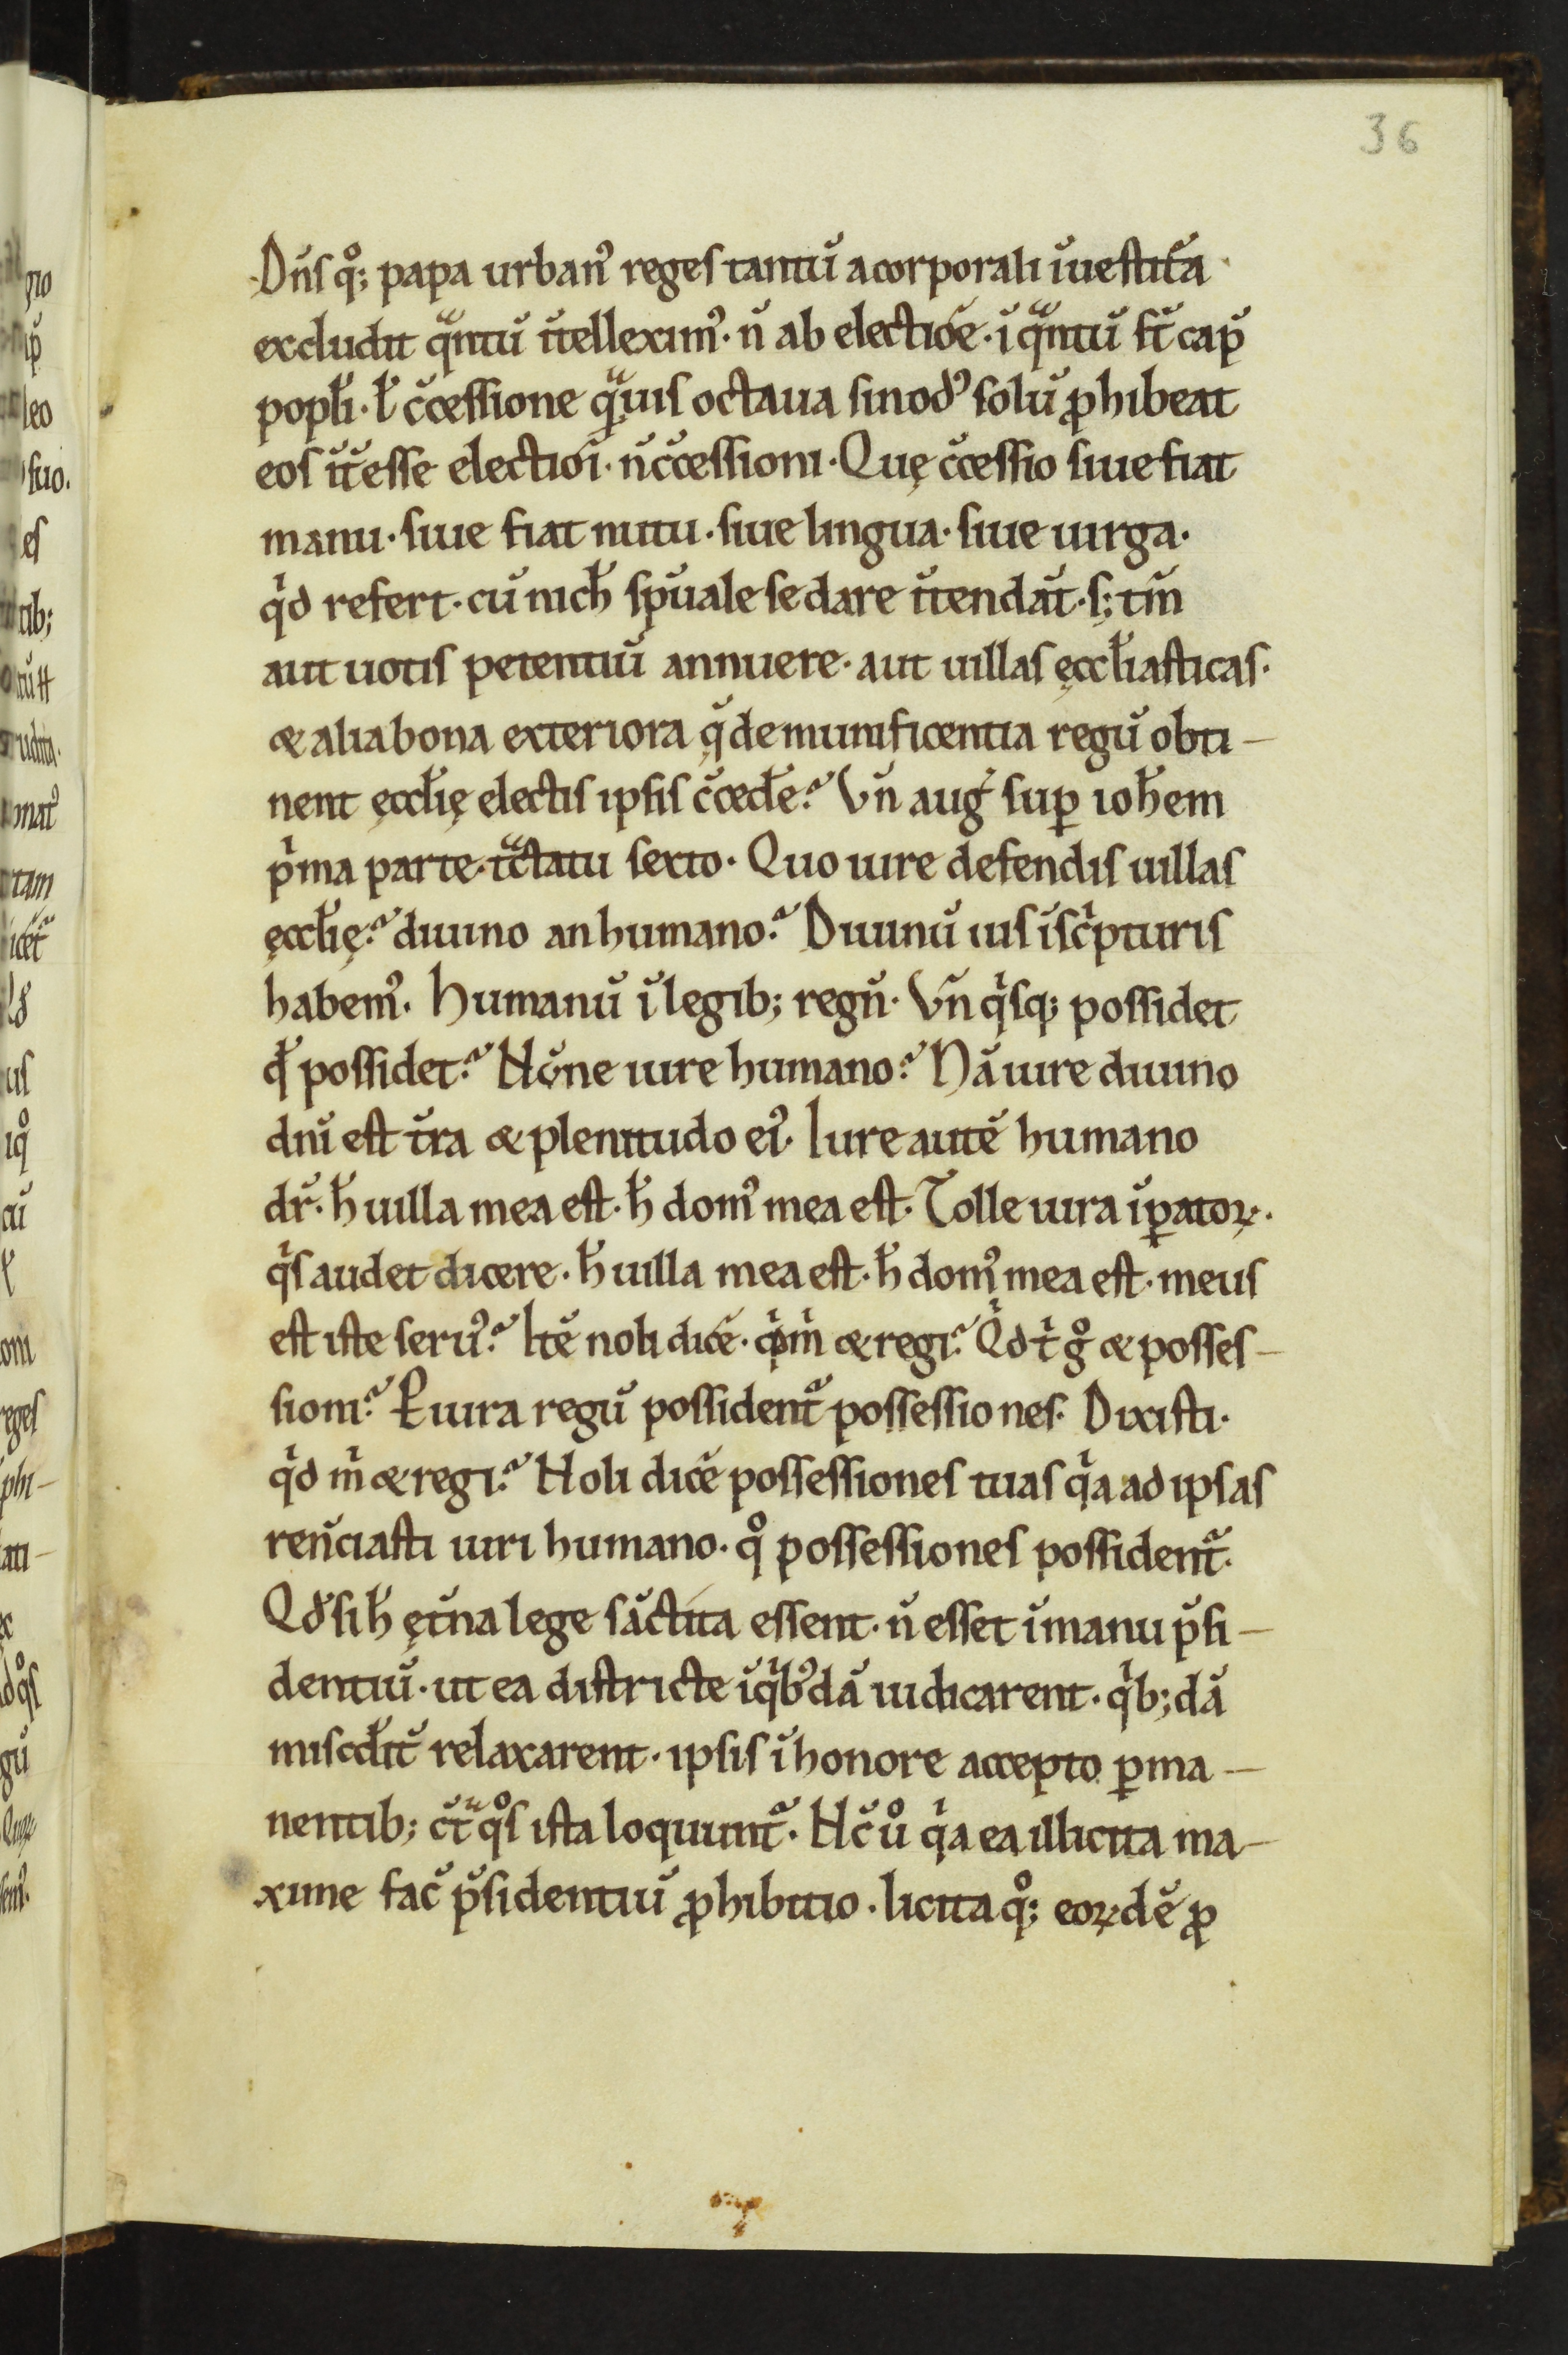 36
Dn̄s qͦ; papa urban᾿ reges tantū a corporali īuestit̄a
excludit qᵃntū īt̄ellexim᾿. n̄ ab electiōe. ī qᵃntū st̄ cap̄
popłi. ł c̄cessione qᵃmuis octaua sinod᾿ solū ꝓhibeat
eos īt̄esse electiōi. n̄ c̄cessioni. Quę c̄cessio siue fiat
manu. siue fiat nutu. siue lingua. siue uirga.
qⁱd refert. cū nich̄ sp̄uale se dare īt̄endāt. s; tm̄
aut uotis petentiū annuere. aut uillas ęccłiasticas.
& alia bona exteriora q̄ de munificentia regū obti-
nent ęccłię electis ipsis c̄ced̄e? Vn̄ auḡ suꝑ ioħem
pⁱma parte. tᵃctatu sexto. Quo iure defendis uillas
ęccłię? diuino an humano? Diuinū ius ī scⁱpturis
habem᾿. Humanū ī legib; regū. Vn̄ qⁱsq; possidet
qđ possidet? Nōne iure humano? Nā iure diuino
dn̄i est t̄ra & plenitudo ei᾿. Iure autē humano
dr̄. h̄ uilla mea est. h̄ dom᾿ mea est. Tolle iura īꝑatoꝝ.
qⁱs audet dicere. h̄ uilla mea est. h̄ dom᾿ mea est. meus
est iste seru᾿? Itē noli dicē. qⁱd mⁱ & regi? Qⁱd tⁱ gͦ & posses-
sioni? P̄ iura regū possident᷑ possessiones. Dixisti.
qⁱd mⁱ & regi? Noli dicē possessiones tuas qⁱa ad ipsas
ren̄ciasti iuri humano. qͦ possessiones possident᷑.
Qđ si h̄ ęt̄na lege sāctita essent. n̄ esset ī manu p̄si-
dentiū. ut ea districte ī qⁱb᾿dā iudicarent. qⁱb; dā
miscđit̄ relaxarent. ipsis ī honore accepto ꝑma-
nentib; ct̄ᵃ qͦs ista loquunt᷑. Nc̄ uͦ qⁱa ea illicita ma-
xime fac̄ p̄sidentiū ꝓhibitio. licita qͦ; eoꝝdē ꝓ